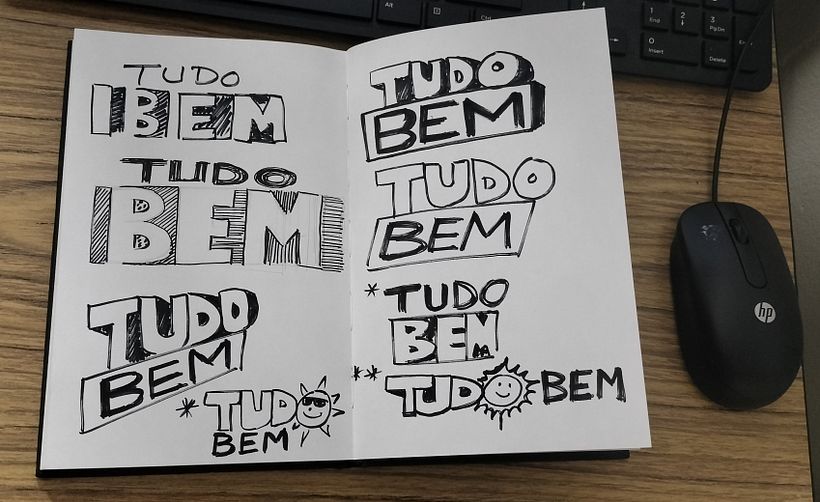 TUDO
BEM
TUDO
BEM
TUDO
BEM
* TUDO
BEM
TUDO
BEM
TUDO
BEM
* TUDO
BEM
** TUDO BEM
Alt
Ctrl
1
End
2
3
PgDn
0
Insert
Delete
hp